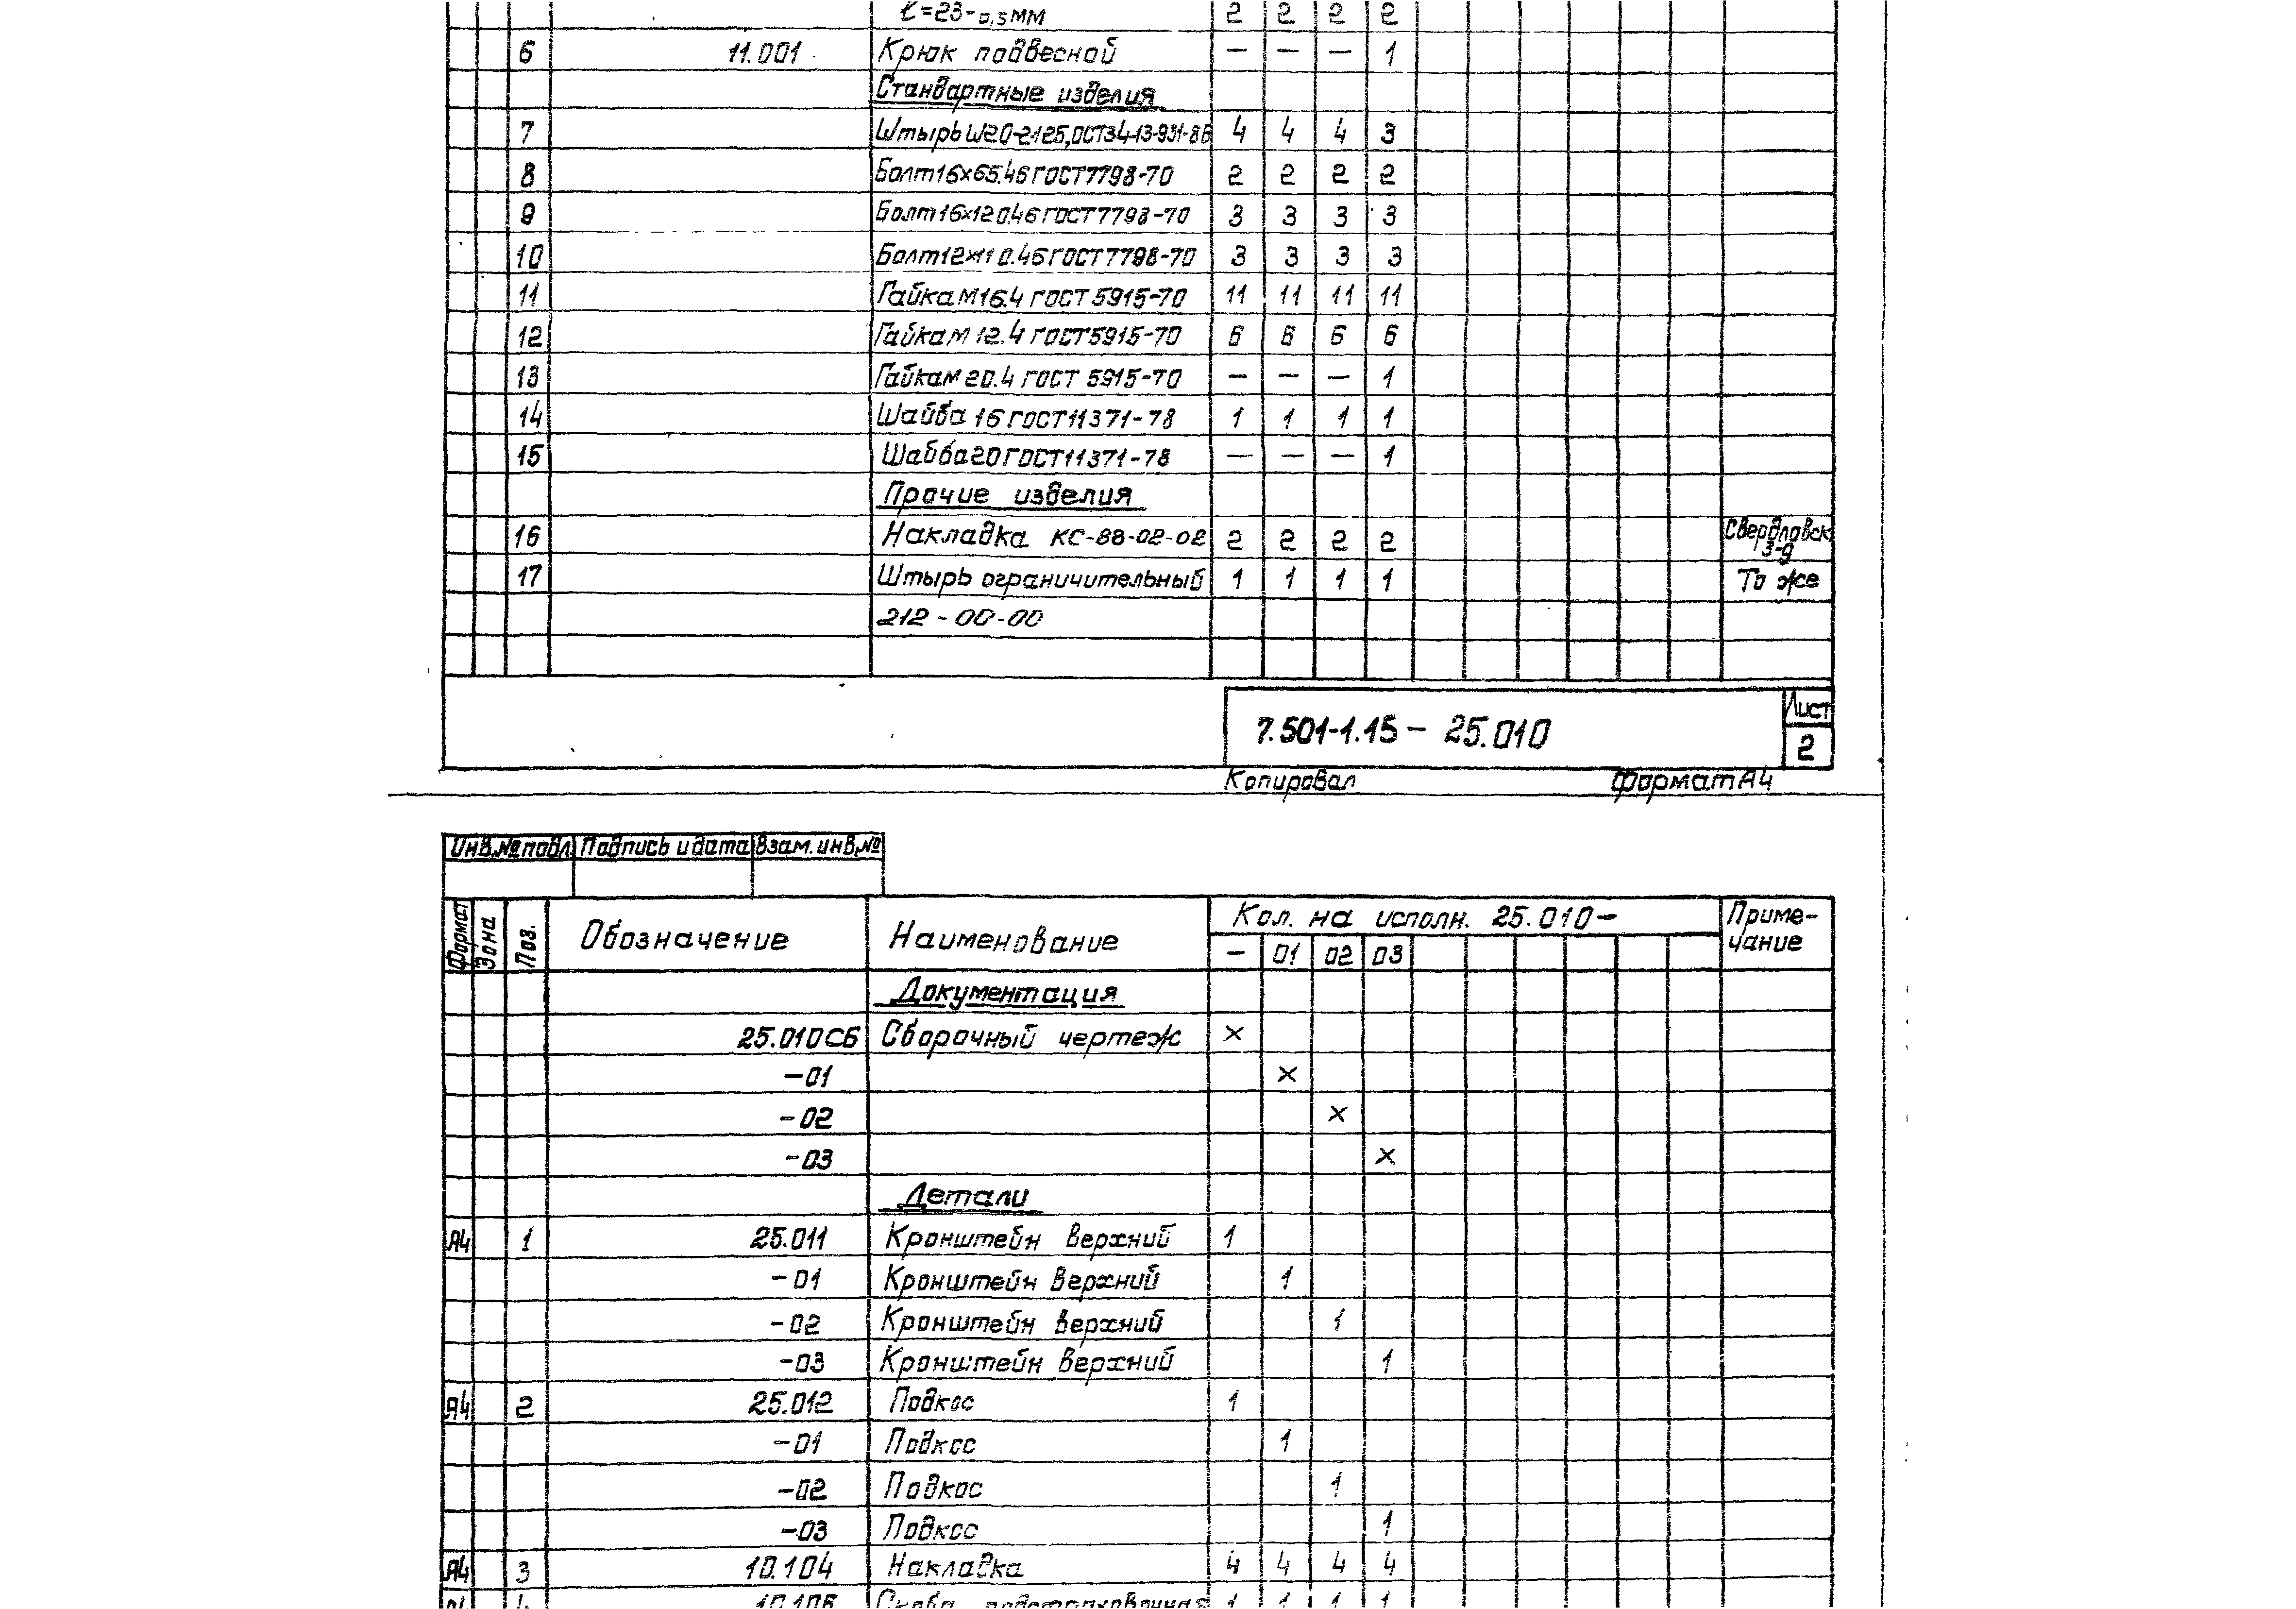 ℓ=23-0,5 мм 2 2 2 2
6 11.001 Крюк подвесной — — — 1
Стандартные изделия
7 Штырь Ш20-2125, ОСТ34-13-931-86 4 4 4 3
8 Болт 16×65.46 ГОСТ 7798-70 2 2 2 2
9 Болт 16×120.46 ГОСТ 7798-70 3 3 3 3
10 Болт 12×110.46 ГОСТ 7798-70 3 3 3 3
11 Гайка М16.4 ГОСТ 5915-70 11 11 11 11
12 Гайка М 12.4 ГОСТ 5915-70 6 6 6 6
13 Гайка М 20.4 ГОСТ 5915-70 — — — 1
14 Шайба 16 ГОСТ 11371-78 1 1 1 1
15 Шайба 20 ГОСТ 11371-78 — — — 1
Прочие изделия
16 Накладка КС-88-02-02 2 2 2 2 Свердловск
з-д
17 Штырь ограничительный 1 1 1 1 То же
212-00-00
7.501-1.15 - 25.010 Лист
2
Копировал Формат А4
Инв.№ подл. Подпись и дата Взам. инв.№
Формат Зона Поз. Обозначение Наименование Кол. на исполн. 25.010— Приме-
чание
— 01 02 03
Документация
25.010СБ Сборочный чертеж ×
-01 ×
-02 ×
-03 ×
Детали
А4 1 25.011 Кронштейн верхний 1
-01 Кронштейн верхний 1
-02 Кронштейн верхний 1
-03 Кронштейн верхний 1
А4 2 25.012 Подкос 1
-01 Подкос 1
-02 Подкос 1
-03 Подкос 1
А4 3 10.104 Накладка 4 4 4 4
1 1 1 1